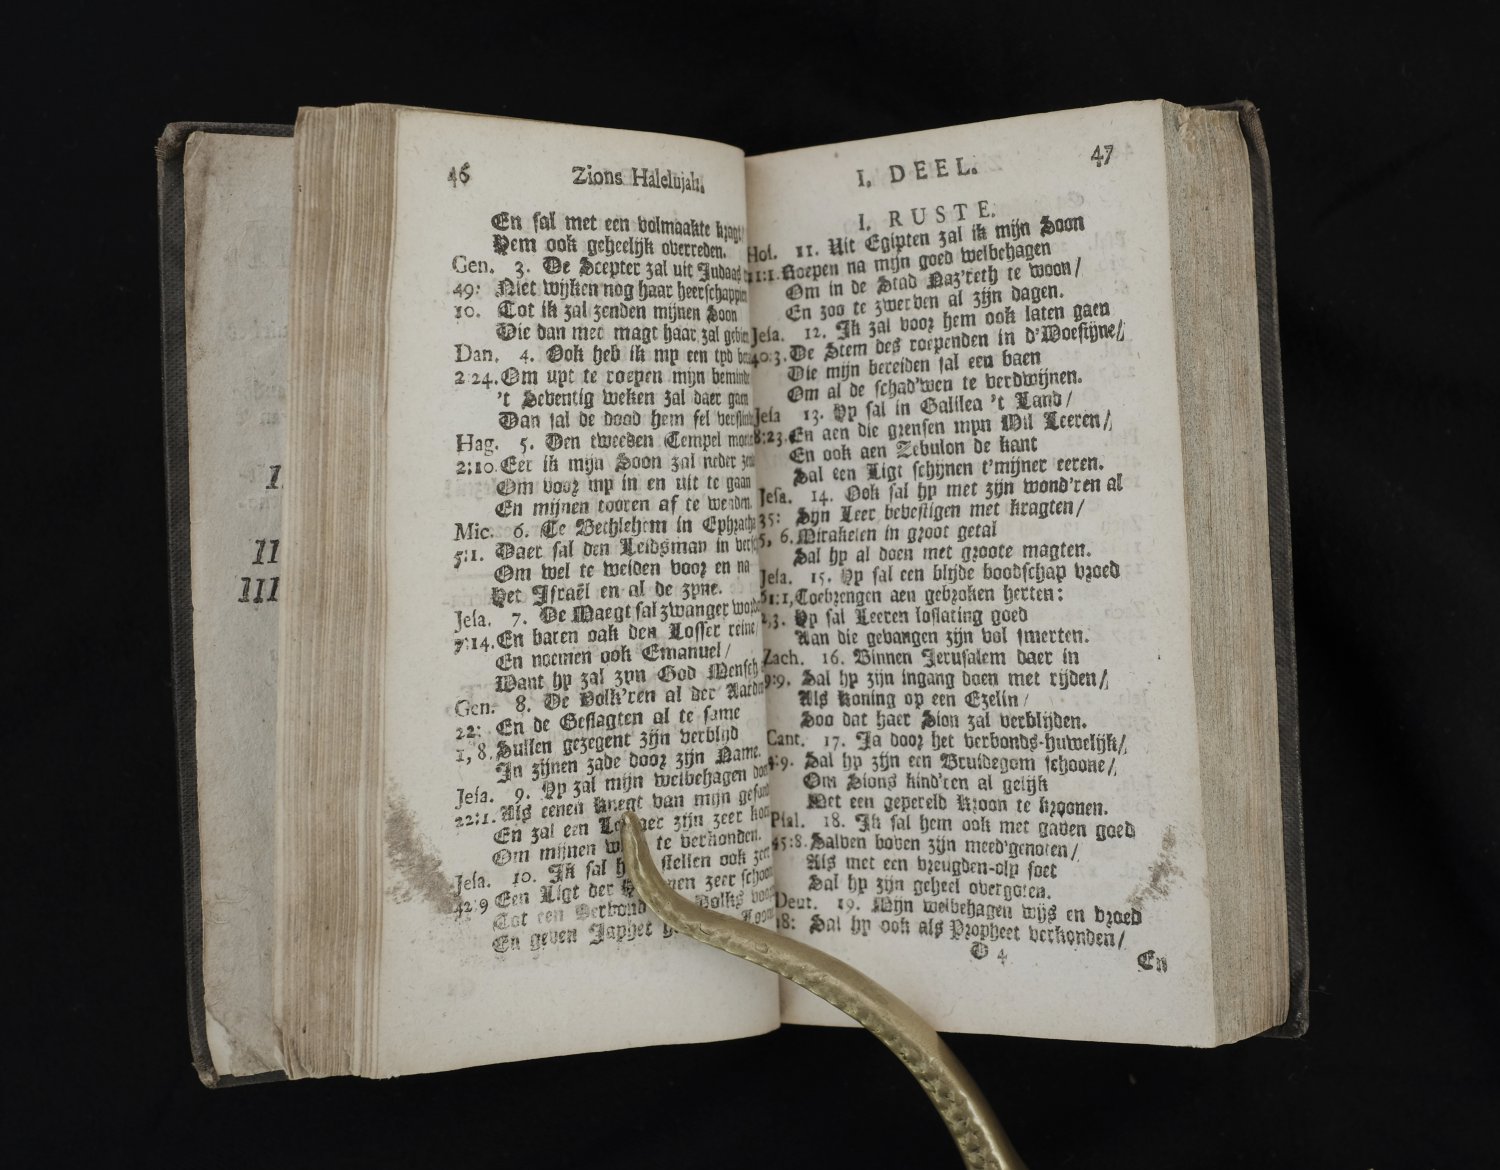 I
II
III
46
Zions Halelujah.
En sal met een volmaakte kragt
Hem ook geheelijk overreden.
Gen. 3. De Scepter zal uit Judaas
49: Niet wijken nog haar heerschappie
10. Tot ik zal zenden mijnen Soon
Die dan met magt haar zal
Dan. 4. Ook heb ik my een tyd
2 24. Om uyt te roepen mijn
't Seventig weken zal daer gaen
Dan sal de dood hem fel
Hag. 5. Den tweeden Tempel
2:10. Eer ik mijn Soon zal neder
Om voor my in en uit te gaan
En mijnen tooren af te wenden.
Mic. 6. Te Bethlehem in Ephratha
5:1. Daer sal den Leidsman in
Om wel te weiden voor en na
Het Israël en al de zyne.
Jesa. 7. De Maegt sal zwanger
7:14. En baren oak den Losser reine/
En noemen ook Emanuel/
Want hy zal zyn God Mensch
Gen. 8. De Volk'ren al der Aarden
22: En de Geslagten al te same
1, 8. Sullen gezegent zijn verblijd
In zijnen zade door zijn Name.
Jesa. 9. Hy zal mijn welbehagen
22:1. Als eenen knegt van mijn
En zal een zijn zeer
Om mijnen te verkonden.
Jesa. 10. Ik sal stellen ook
42:9 Een Ligt der zeer schoon
Tot een Verbond Volks
En geven Japhet
47
I. DEEL.
I. RUSTE.
Hos. 11. Uit Egipten zal ik mijn Soon
11:1. Roepen na mijn goed welbehagen
Om in de Stad Naz'reth te woon/
En zoo te zwerven al zijn dagen.
Jesa. 12. Ik zal voor hem ook laten gaen
40:3. De Stem des roependen in d'Woestijne/
Die mijn bereiden sal een baen
Om al de schad'wen te verdwijnen.
Jesa 13. Hy sal in Galilea 't Land/
8:23. En aen die grensen myn Wil Leeren/
En ook aen Zebulon de kant
Sal een Ligt schynen t'mijner eeren.
Jesa. 14. Ook sal hy met zijn wond'ren al
35: Sijn Leer bevestigen met kragten/
5, 6. Mirakelen in groot getal
Sal hy al doen met groote magten.
Jesa. 15. Hy sal een blijde boodschap vroed
61:1, Toebrengen aen gebroken herten:
2,3. Hy sal Leeren loslating goed
Aan die gevangen zijn vol smerten.
Zach. 16. Binnen Jerusalem daer in
9:9. Sal hy zijn ingang doen met rijden/
Als Koning op een Ezelin/
Soo dat haer Sion zal verblijden.
Cant. 17. Ja door het verbonds-huwelijk/
4:9. Sal hy zijn een Bruidegom schoone/
Om Sions kind'ren al gelijk
Met een gepereld Kroon te kroonen.
Psal. 18. Ik sal hem ook met gaven goed
45:8. Salven boven zijn meed'genoten/
Als met een vreugden-oly soet
Sal hy zijn geheel overgoten.
Deut. 19. Mijn welbehagen wijs en vroed
18: Sal hy ook als Propheet verkonden/
D 4
En